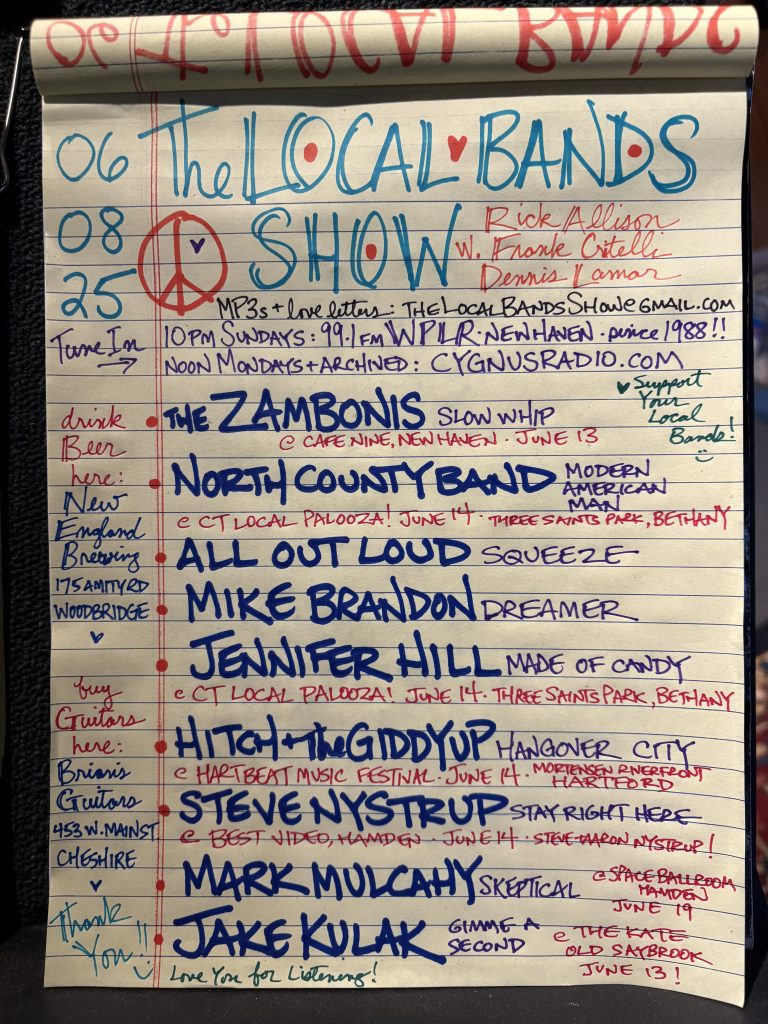 The LOCAL BANDS
SHOW
06
08
25
Rick Allison
w. Frank Critelli
Dennis Lamar
MP3s + love letters: THELOCALBANDSSHOW@GMAIL.COM
Tune In
10PM SUNDAYS: 99.1 FM WPLR · NEW HAVEN · since 1988!!
NOON MONDAYS + ARCHIVED: CYGNUSRADIO.COM
Support
Your
Local
Bands!
THE ZAMBONIS SLOW WHIP
@ CAFE NINE, NEW HAVEN · JUNE 13
NORTH COUNTY BAND MODERN
AMERICAN
MAN
@ CT LOCAL PALOOZA! JUNE 14 · THREE SAINTS PARK, BETHANY
ALL OUT LOUD SQUEEZE
MIKE BRANDON DREAMER
JENNIFER HILL MADE OF CANDY
@ CT LOCAL PALOOZA! JUNE 14 · THREE SAINTS PARK, BETHANY
HITCH + The GIDDYUP HANGOVER CITY
@ HARTBEAT MUSIC FESTIVAL · JUNE 14 · MORTENSEN RIVERFRONT
HARTFORD
STEVE NYSTRUP STAY RIGHT HERE
@ BEST VIDEO, HAMDEN · JUNE 14 · STEVE AARON NYSTRUP!
MARK MULCAHY SKEPTICAL
@ SPACE BALLROOM
HAMDEN
JUNE 19
JAKE KULAK GIMME A
SECOND
@ THE KATE
OLD SAYBROOK
JUNE 13!
Love You for Listening!
drink
Beer
here:
New
England
Brewing
175 AMITY RD
WOODBRIDGE
buy
Guitars
here:
Brian's
Guitars
453 W. MAIN ST.
CHESHIRE
Thank
You!!